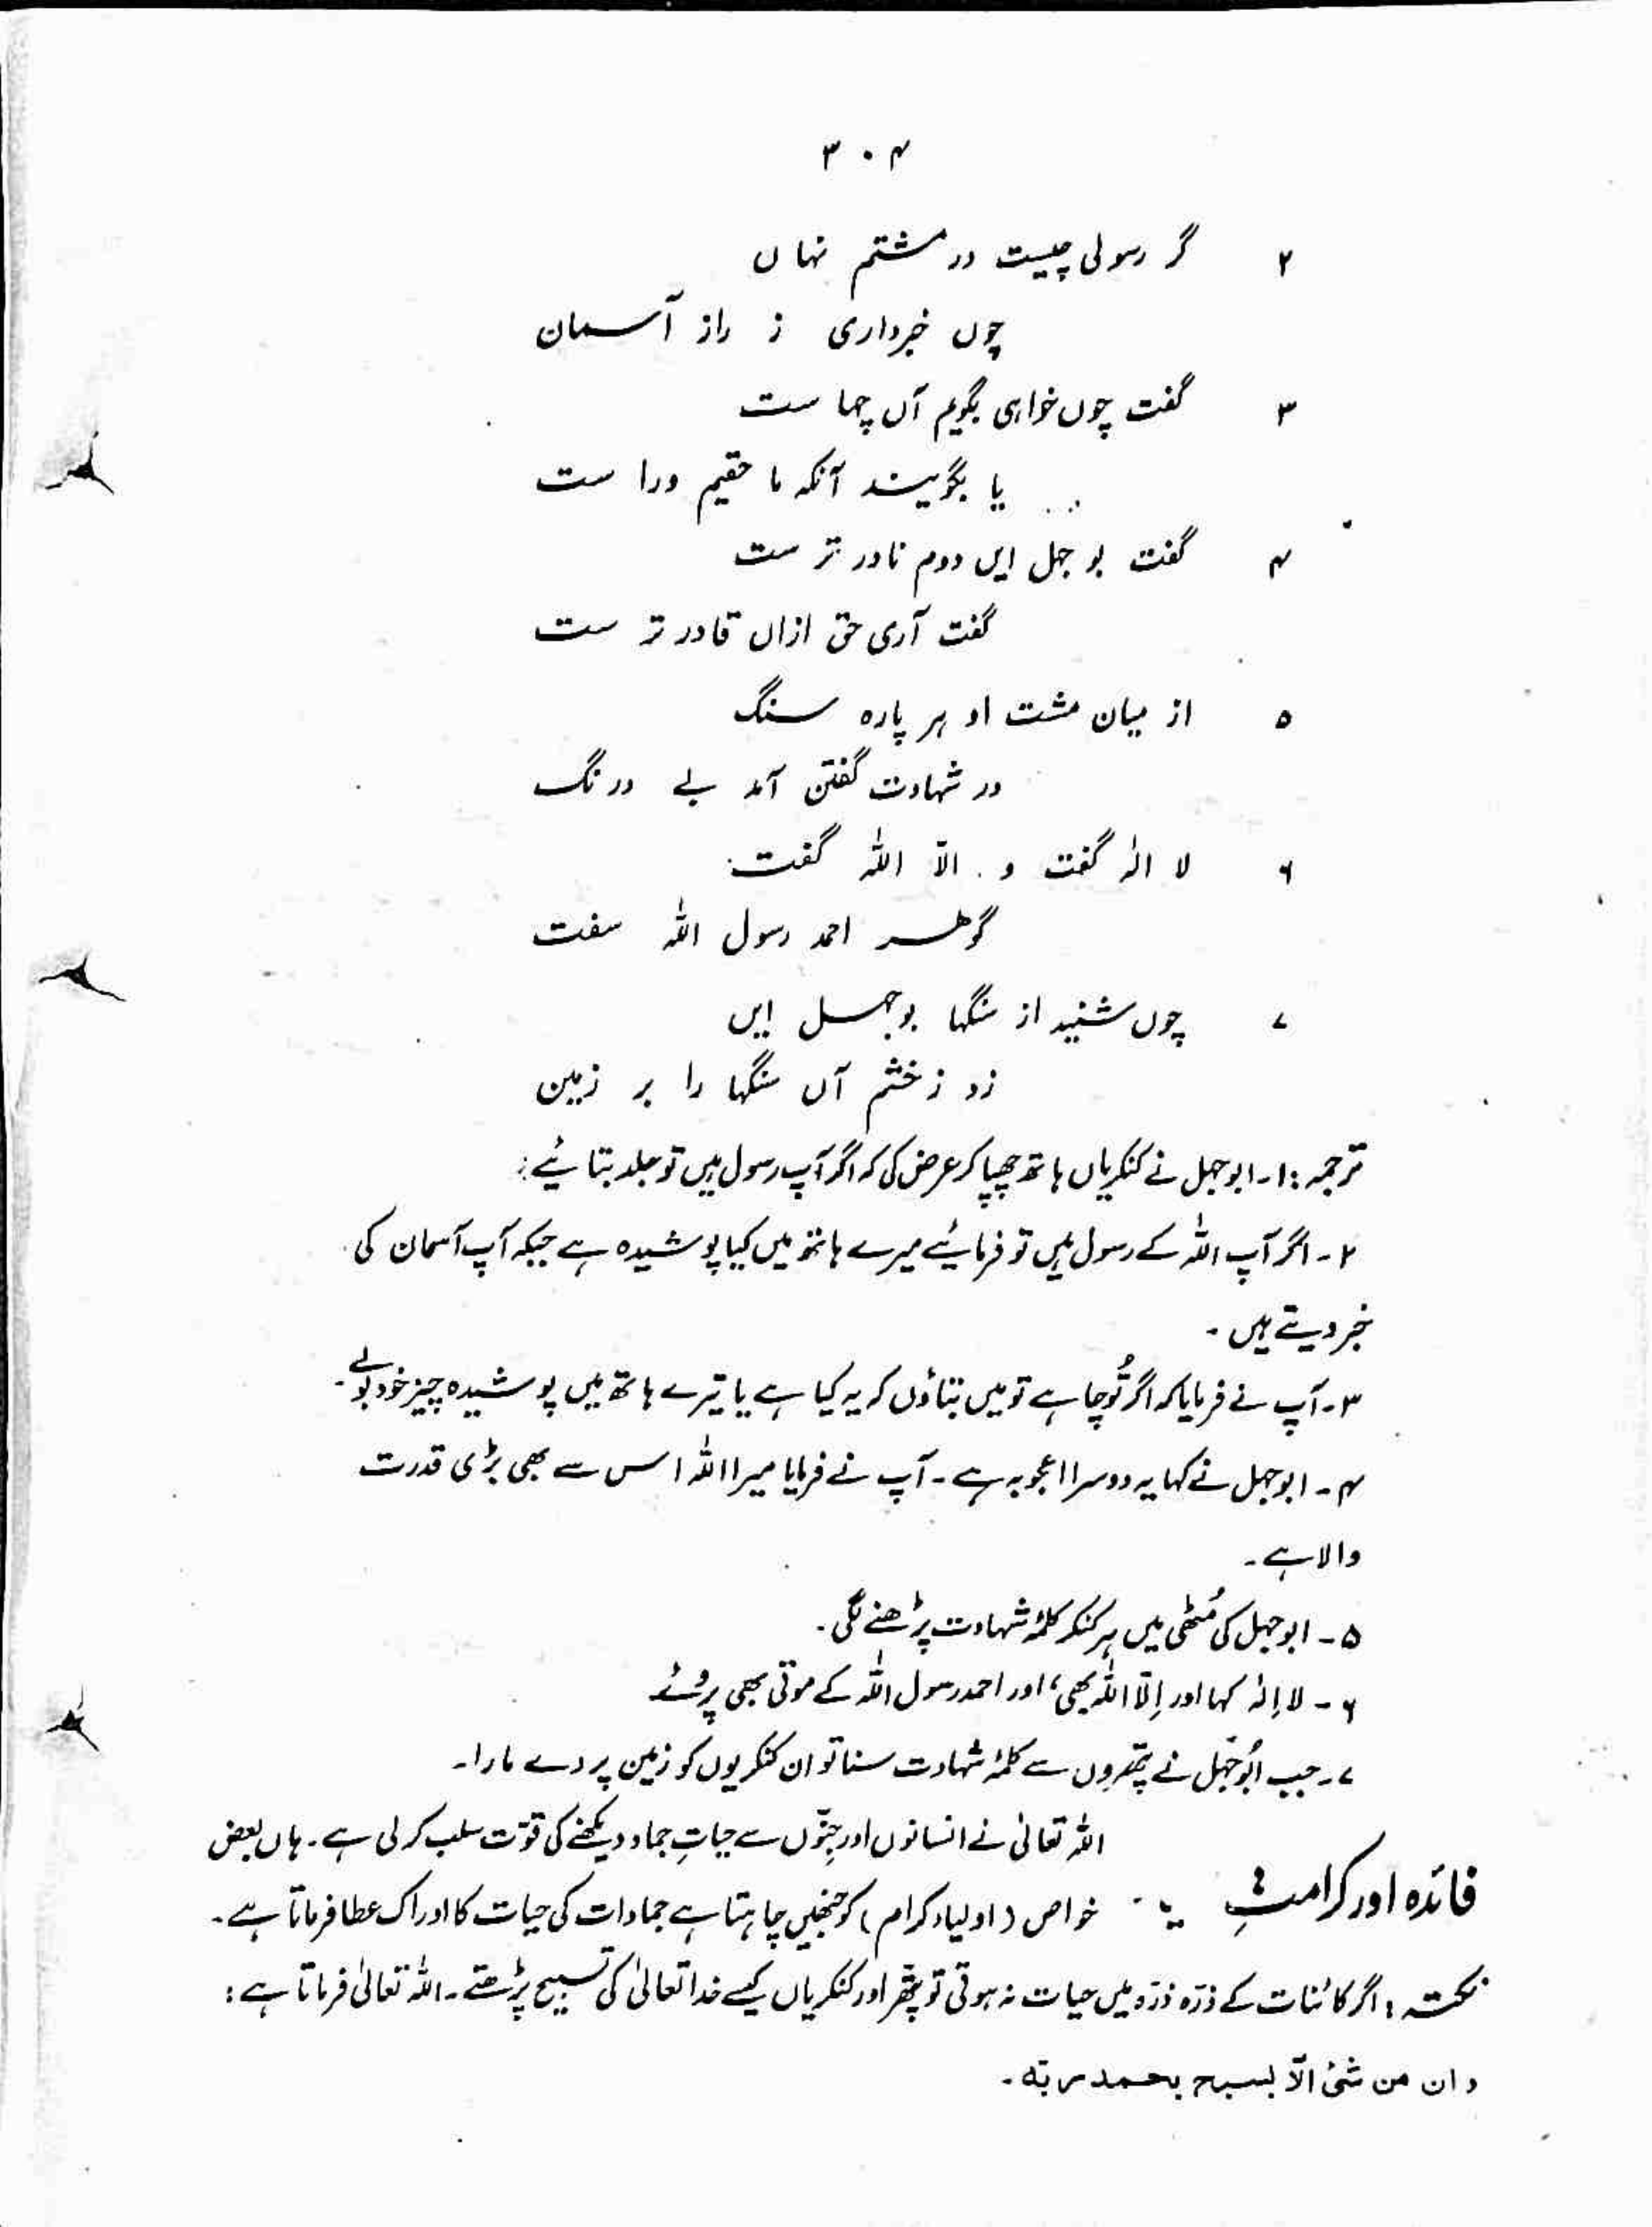 ۳۰۴
۲ گر رسولی چیست در مشتم نہاں
چوں خبرداری ز راز آسمان
۳ گفت چوں خواہی بگویم آں چہاست
یا بگویند آنکہ ما حقیم وراست
۴ گفت بوجہل ایں دوم نادر ترست
گفت آری حق ازاں قادر ترست
۵ از میان مشت او ہر پارہ سنگ
در شہادت گفتن آمد بے درنگ
۶ لا الٰہ گفت و الّا اللہ گفت
گوھر احمد رسول اللہ سفت
۷ چوں شنید از سنگہا بوجہل ایں
زد ز خشم آں سنگہا را بر زمین
ترجمہ : ۱۔ ابوجہل نے کنکریاں ہاتھ چھپا کر عرض کی کہ اگر آپ رسول ہیں تو جلد بتائیے :
۲۔ اگر آپ اللہ کے رسول ہیں تو فرمائیے میرے ہاتھ میں کیا پوشیدہ ہے جبکہ آپ آسمان کی
خبر دیتے ہیں ۔
۳۔ آپ نے فرمایا کہ اگر تُو چاہے تو میں بتاؤں کہ یہ کیا ہے یا تیرے ہاتھ میں پوشیدہ چیز خود بولے ۔
۴۔ ابوجہل نے کہا یہ دوسرا اعجوبہ ہے ۔ آپ نے فرمایا میرا اللہ اس سے بھی بڑی قدرت
والا ہے ۔
۵۔ ابوجہل کی مُٹھی میں ہر کنکر کلمۂ شہادت پڑھنے لگی ۔
۶۔ لا اِلٰہ کہا اور اِلّا اللہ بھی، اور احمد رسول اللہ کے موتی بھی پروئے
۷۔ جب ابُوجَہل نے پتھروں سے کلمۂ شہادت سنا تو ان کنکریوں کو زمین پر دے مارا ۔
اللہ تعالیٰ نے انسانوں اور جِنّوں سے حیاتِ جماد دیکھنے کی قوّت سلب کر لی ہے ۔ ہاں بعض
فائدہ اور کرامتِ خواص (اولیاء کرام) کو جنھیں چاہتا ہے جمادات کی حیات کا ادراک عطا فرماتا ہے ۔
نکتہ : اگر کائنات کے ذرّہ ذرّہ میں حیات نہ ہوتی تو پتھر اور کنکریاں کیسے خدا تعالیٰ کی تسبیح پڑھتے ۔ اللہ تعالیٰ فرماتا ہے :
و ان من شئ الّا یسبح بحمد ربّہ ۔